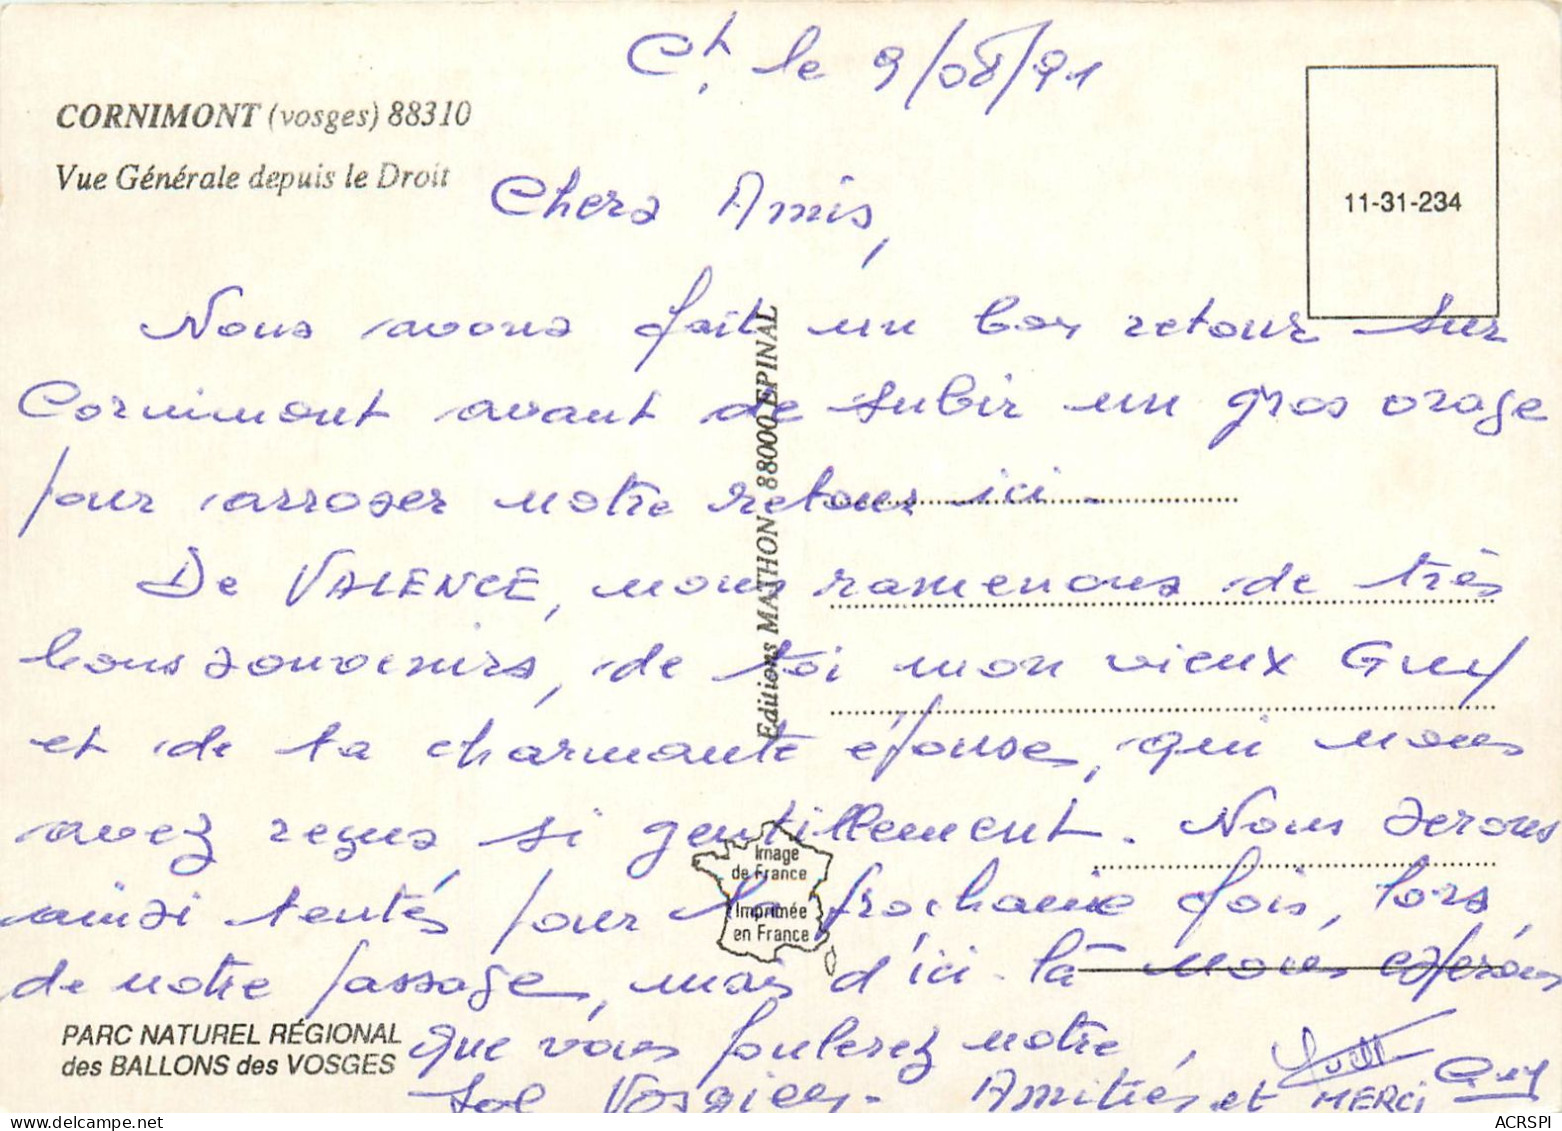 Ct, le 9/08/91
CORNIMONT (vosges) 88310
Vue Générale depuis le Droit
11-31-234
Chers Amis,
Nous avons fait un bon retour sur
Cornimont avant de subir un gros orage
pour arroser notre retour ici.
De VALENCE, nous ramenons de très
bons souvenirs, de toi mon vieux Guy
et de ta charmante épouse, qui nous
avez reçus si gentillement. Nous serons
ainsi tentés pour la prochaine fois, lors
de notre passage, mais d'ici-là nous espérons
que vous foulerez notre
sol Vosgien. Amitiés et MERCI
Guy
Editions MATHON 88000 EPINAL
Image
de France
Imprimée
en France
PARC NATUREL RÉGIONAL
des BALLONS des VOSGES
ACRSPI